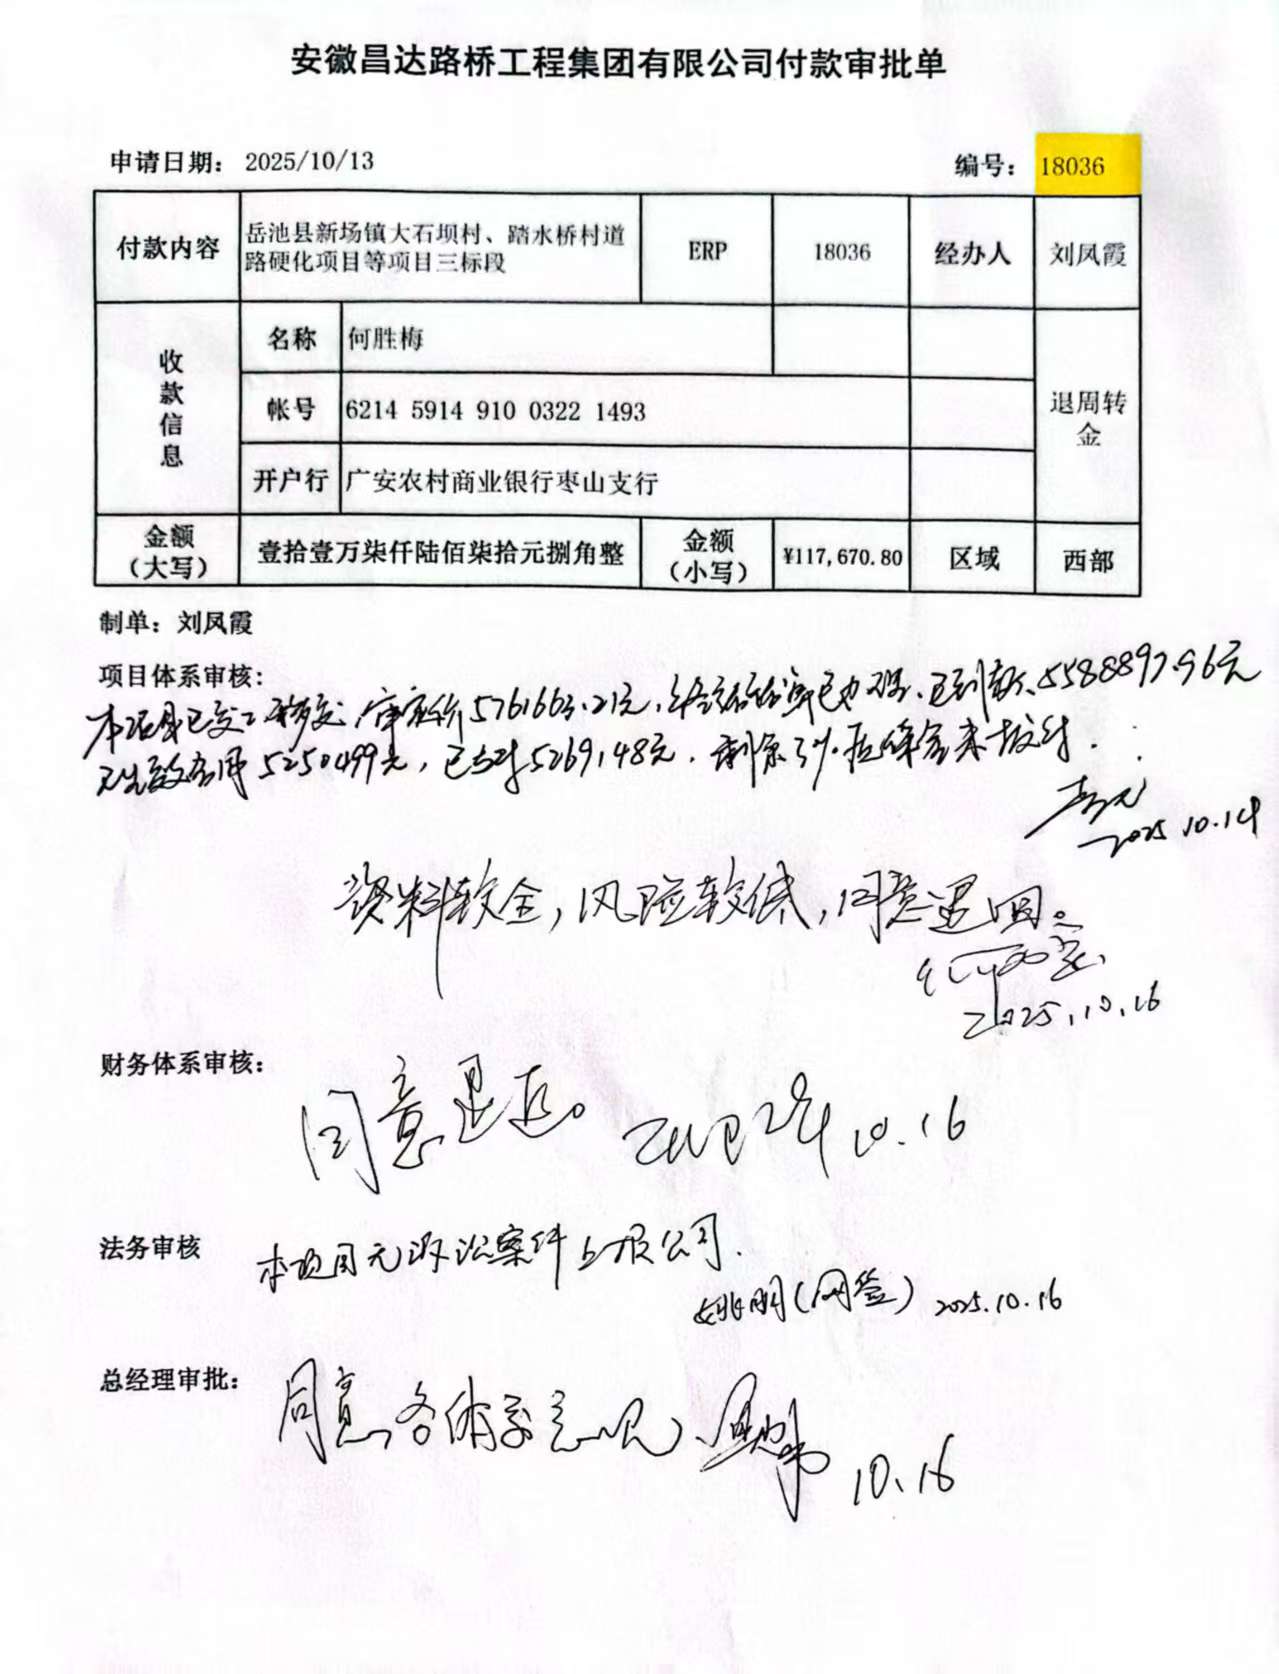 安徽昌达路桥工程集团有限公司付款审批单
申请日期: 2025/10/13 编号: 18036
付款内容 岳池县新场镇大石坝村、踏水桥村道路硬化项目等项目三标段 ERP 18036 经办人 刘凤霞
收款信息
名称 何胜梅
帐号 6214 5914 910 0322 1493
退周转金
开户行 广安农村商业银行枣山支行
金额(大写) 壹拾壹万柒仟陆佰柒拾元捌角整 金额(小写) ¥117,670.80 区域 西部
制单: 刘凤霞
项目体系审核:
本项目已交工移交,审定价5761663.21元,已到款5588897.96元
5250499元,已支付5269148元,剩余3%质保金未拨付.
2025.10.14
资料较全,风险较低,同意退回。
2025.10.16
财务体系审核:
同意退返。 10.16
法务审核
本项目无诉讼案件上报公司.
姚明(网签) 2025.10.16
总经理审批:
同意各体系意见、 10.16